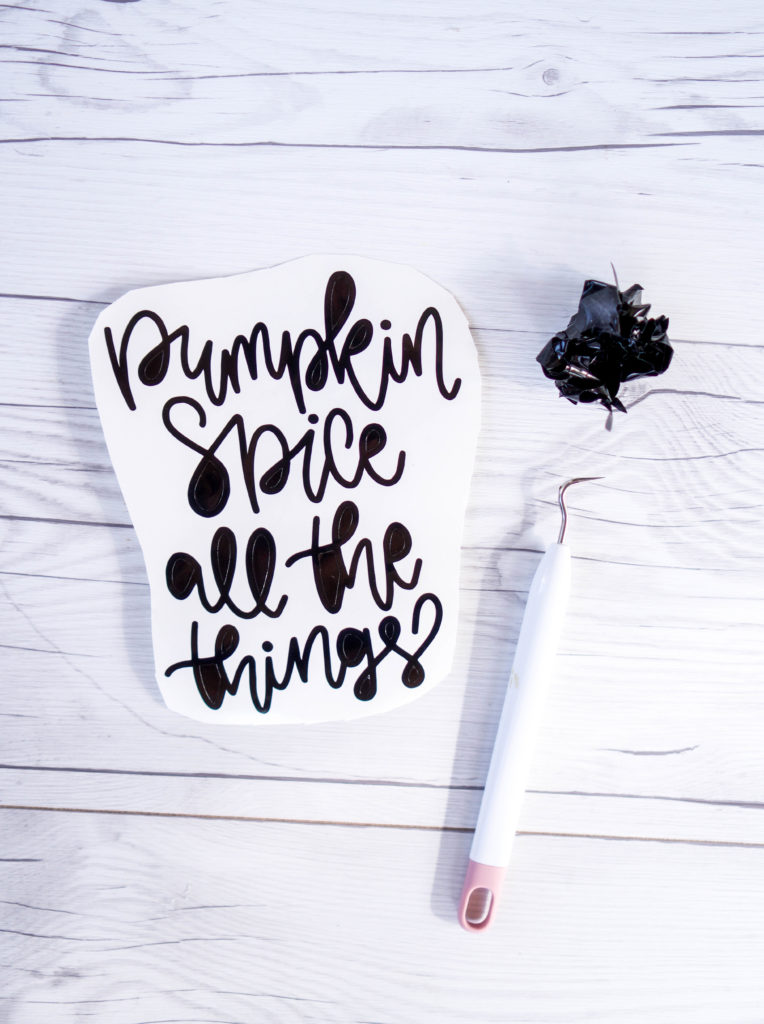 pumpkin
spice
all the
things